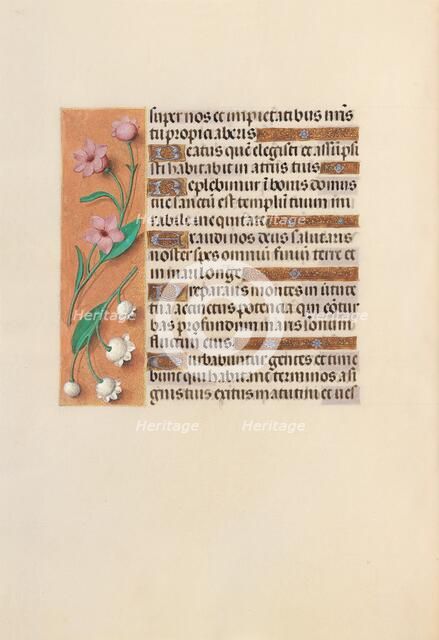 super nos et impietatibus nr̄is
tu propiciaberis
Beatus quē elegisti et assūpsi
sti habitabit in atriis tuis
Replebimur ī bonis domus
tue sanctū est templū tuum mi
rabile in equitate
Exaudi nos deus salutaris
noster spes omniū finiū terre et
in mari longe
Preparans montes in virtute
tua accinctus potencia qui cōtur
bas profundum maris sonum
fluctuū eius
Turbabuntur gentes et time
bunt qui habitant terminos a si
gnis tuis exitus matutini et ves
Heritage
Heritage
Heritage
Heritage
Heritage
Heritage